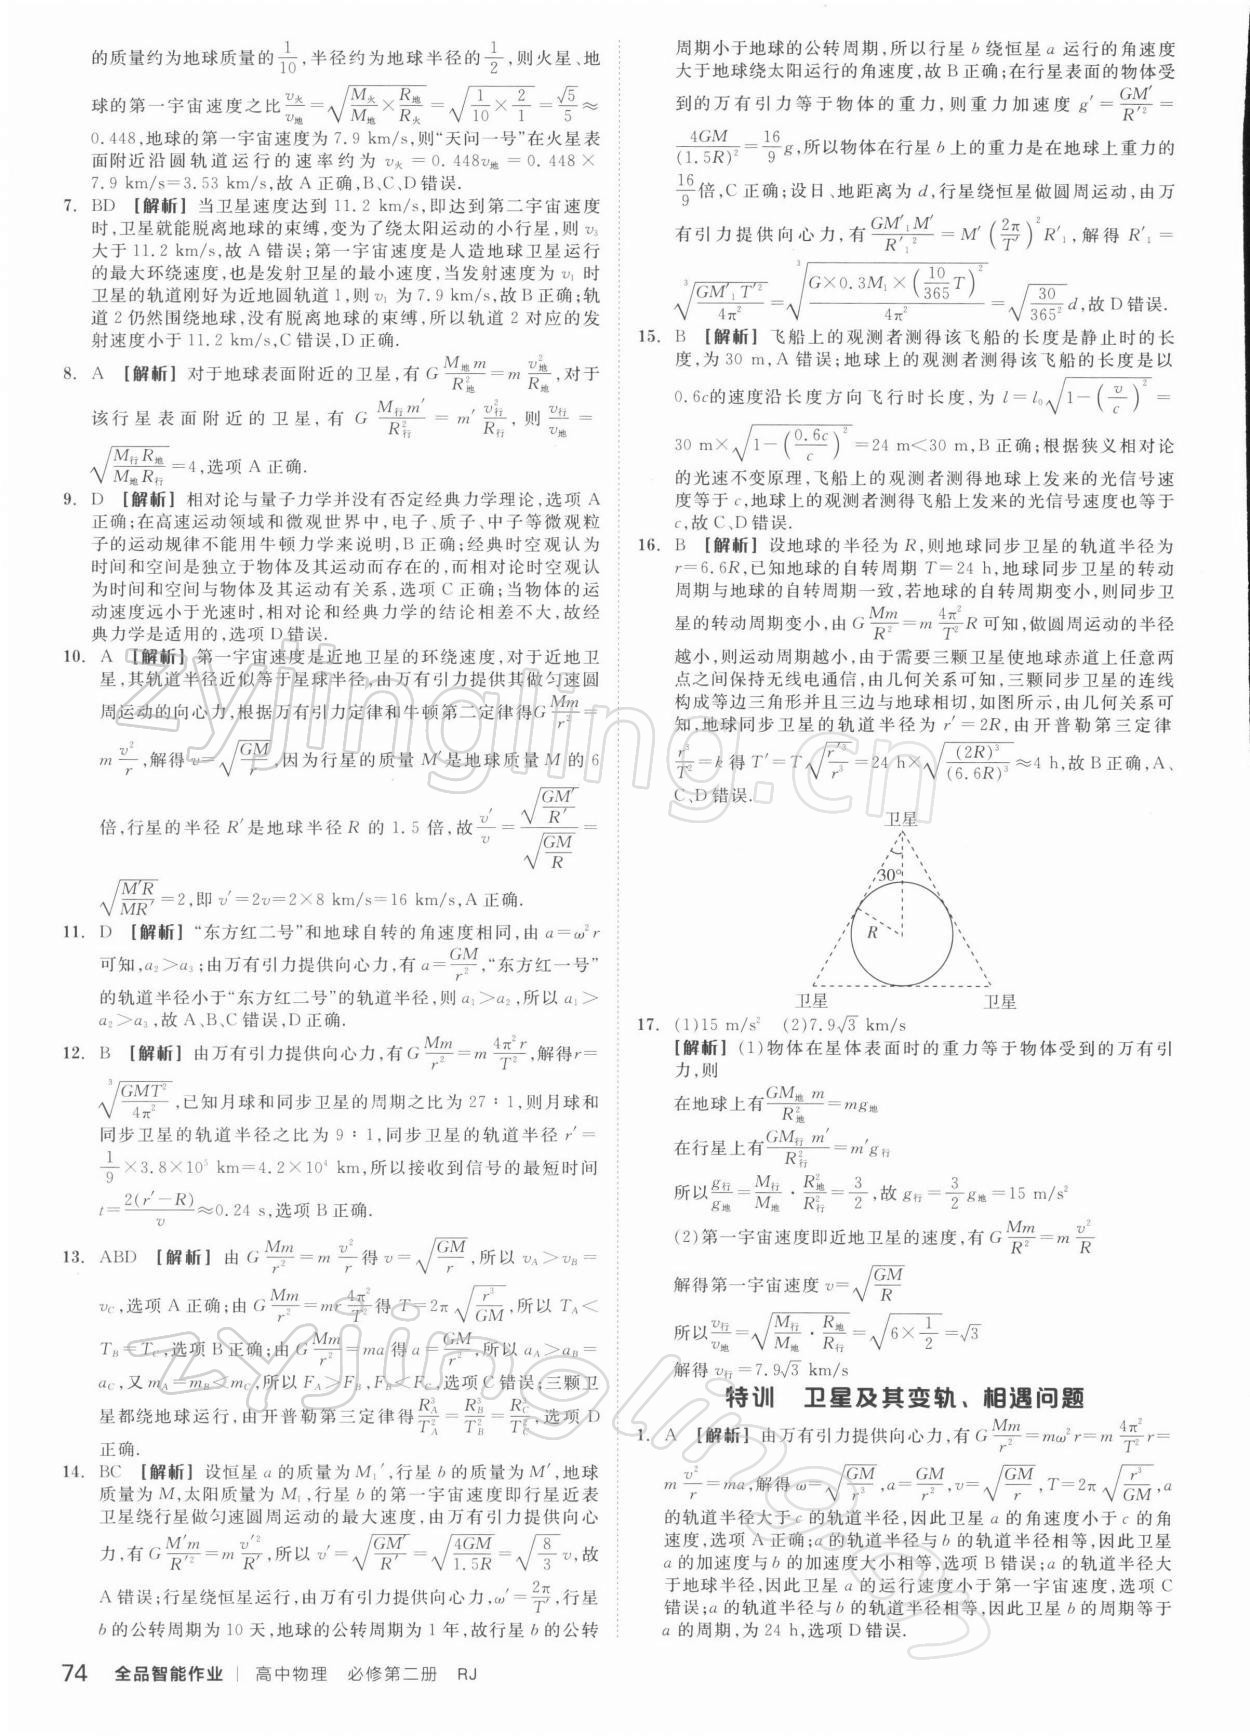 的质量约为地球质量的1/10,半径约为地球半径的1/2,则火星、地
球的第一宇宙速度之比v火/v地=√(M火/M地×R地/R火)=√(1/10×2/1)=√5/5≈
0.448,地球的第一宇宙速度为7.9 km/s,则“天问一号”在火星表
面附近沿圆轨道运行的速率约为 v火=0.448v地=0.448×
7.9 km/s=3.53 km/s,故 A 正确,B、C、D 错误.
7. BD [解析] 当卫星速度达到 11.2 km/s,即达到第二宇宙速度
时,卫星就能脱离地球的束缚,变为了绕太阳运动的小行星,则 v₃
大于 11.2 km/s,故 A 错误;第一宇宙速度是人造地球卫星运行
的最大环绕速度,也是发射卫星的最小速度,当发射速度为 v₁ 时
卫星的轨道刚好为近地圆轨道 1,则 v₁ 为 7.9 km/s,故 B 正确;轨
道 2 仍然围绕地球,没有脱离地球的束缚,所以轨道 2 对应的发
射速度小于 11.2 km/s,C 错误,D 正确.
8. A [解析] 对于地球表面附近的卫星,有 G M地m/R地²=m v地²/R地,对于
该行星表面附近的卫星,有 G M行m′/R行²=m′ v行²/R行,则 v行/v地=
√(M行R地/M地R行)=4,选项 A 正确.
9. D [解析] 相对论与量子力学并没有否定经典力学理论,选项 A
正确;在高速运动领域和微观世界中,电子、质子、中子等微观粒
子的运动规律不能用牛顿力学来说明,B 正确;经典时空观认为
时间和空间是独立于物体及其运动而存在的,而相对论时空观认
为时间和空间与物体及其运动有关系,选项 C 正确;当物体的运
动速度远小于光速时,相对论和经典力学的结论相差不大,故经
典力学是适用的,选项 D 错误.
10. A [解析] 第一宇宙速度是近地卫星的环绕速度,对于近地卫
星,其轨道半径近似等于星球半径,由万有引力提供其做匀速圆
周运动的向心力,根据万有引力定律和牛顿第二定律得G Mm/r²=
m v²/r,解得 v=√(GM/r),因为行星的质量 M′是地球质量 M 的 6
倍,行星的半径 R′是地球半径 R 的 1.5 倍,故 v′/v=√(GM′/R′)/√(GM/R)=
√(M′R/MR′)=2,即 v′=2v=2×8 km/s=16 km/s,A 正确.
11. D [解析] “东方红二号”和地球自转的角速度相同,由 a=ω²r
可知,a₂>a₃;由万有引力提供向心力,有 a=GM/r²,“东方红一号”
的轨道半径小于“东方红二号”的轨道半径,则 a₁>a₂,所以 a₁>
a₂>a₃,故 A、B、C 错误,D 正确.
12. B [解析] 由万有引力提供向心力,有G Mm/r²=m 4π²r/T²,解得r=
³√(GMT²/4π²),已知月球和同步卫星的周期之比为 27∶1,则月球和
同步卫星的轨道半径之比为 9∶1,同步卫星的轨道半径 r′=
1/9×3.8×10⁵ km=4.2×10⁴ km,所以接收到信号的最短时间
t=2(r′−R)/v≈0.24 s,选项 B 正确.
13. ABD [解析] 由 G Mm/r²=m v²/r 得 v=√(GM/r),所以 v_A>v_B=
v_C,选项 A 正确;由 G Mm/r²=mr 4π²/T² 得 T=2π√(r³/GM),所以 T_A<
T_B=T_C,选项 B 正确;由 G Mm/r²=ma 得 a=GM/r²,所以 a_A>a_B=
a_C,又 m_A=m_B<m_C,所以 F_A>F_B,F_B<F_C,选项 C 错误;三颗卫
星都绕地球运行,由开普勒第三定律得 R_A³/T_A²=R_B³/T_B²=R_C³/T_C²,选项 D
正确.
14. BC [解析] 设恒星 a 的质量为 M₁′,行星 b 的质量为 M′,地球
质量为 M,太阳质量为 M₁,行星 b 的第一宇宙速度即行星近表
卫星绕行星做匀速圆周运动的最大速度,由万有引力提供向心
力,有 G M′m/R′²=m v′²/R′,所以 v′=√(GM′/R′)=√(4GM/1.5R)=√(8/3) v,故
A 错误;行星绕恒星运行,由万有引力提供向心力,ω′=2π/T′,行星
b 的公转周期为 10 天,地球的公转周期为 1 年,故行星 b 的公转
周期小于地球的公转周期,所以行星 b 绕恒星 a 运行的角速度
大于地球绕太阳运行的角速度,故 B 正确;在行星表面的物体受
到的万有引力等于物体的重力,则重力加速度 g′=GM′/R′²=
4GM/(1.5R)²=16/9 g,所以物体在行星 b 上的重力是在地球上重力的
16/9倍,C 正确;设日、地距离为 d,行星绕恒星做圆周运动,由万
有引力提供向心力,有 GM′₁M′/R′₁²=M′(2π/T′)²R′₁,解得 R′₁=
³√(GM′₁T′²/4π²)=³√(G×0.3M₁×(10/365 T)²/4π²)=³√(30/365²) d,故 D 错误.
15. B [解析] 飞船上的观测者测得该飞船的长度是静止时的长
度,为 30 m,A 错误;地球上的观测者测得该飞船的长度是以
0.6c的速度沿长度方向飞行时长度,为 l=l₀√(1−(v/c)²)=
30 m×√(1−(0.6c/c)²)=24 m<30 m,B 正确;根据狭义相对论
的光速不变原理,飞船上的观测者测得地球上发来的光信号速
度等于 c,地球上的观测者测得飞船上发来的光信号速度也等于
c,故 C、D 错误.
16. B [解析] 设地球的半径为 R,则地球同步卫星的轨道半径为
r=6.6R,已知地球的自转周期 T=24 h,地球同步卫星的转动
周期与地球的自转周期一致,若地球的自转周期变小,则同步卫
星的转动周期变小,由 G Mm/R²=m 4π²/T² R 可知,做圆周运动的半径
越小,则运动周期越小,由于需要三颗卫星使地球赤道上任意两
点之间保持无线电通信,由几何关系可知,三颗同步卫星的连线
构成等边三角形并且三边与地球相切,如图所示,由几何关系可
知,地球同步卫星的轨道半径为 r′=2R,由开普勒第三定律
r³/T²=k 得 T′=T√(r′³/r³)=24 h×√((2R)³/(6.6R)³)≈4 h,故 B 正确,A、
C、D 错误.
卫星
30°
R
卫星 卫星
17. (1)15 m/s² (2)7.9√3 km/s
[解析] (1)物体在星体表面时的重力等于物体受到的万有引
力,则
在地球上有 GM地m/R地²=mg地
在行星上有 GM行m′/R行²=m′g行
所以 g行/g地=M行/M地·R地²/R行²=3/2,故 g行=3/2 g地=15 m/s²
(2)第一宇宙速度即近地卫星的速度,有 G Mm/R²=m v²/R
解得第一宇宙速度 v=√(GM/R)
所以 v行/v地=√(M行/M地·R地/R行)=√(6×1/2)=√3
解得 v行=7.9√3 km/s
特训 卫星及其变轨、相遇问题
1. A [解析] 由万有引力提供向心力,有 G Mm/r²=mω²r=m 4π²/T² r=
m v²/r=ma,解得 ω=√(GM/r³),a=GM/r²,v=√(GM/r),T=2π√(r³/GM),a
的轨道半径大于 c 的轨道半径,因此卫星 a 的角速度小于 c 的角
速度,选项 A 正确;a 的轨道半径与 b 的轨道半径相等,因此卫星
a 的加速度与 b 的加速度大小相等,选项 B 错误;a 的轨道半径大
于地球半径,因此卫星 a 的运行速度小于第一宇宙速度,选项 C
错误;a 的轨道半径与 b 的轨道半径相等,因此卫星 b 的周期等于
a 的周期,为 24 h,选项 D 错误.
74 全品智能作业 | 高中物理 必修第二册 RJ
zyjingling.cn
zyjingling.cn